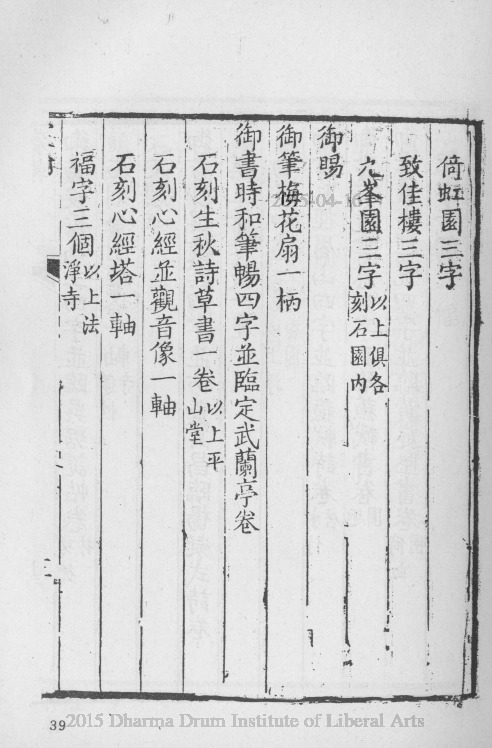 倚虹園三字
致佳樓三字
九峯園三字以上俱各刻石園内
御賜
御筆梅花扇一柄
御書時和筆暢四字並臨定武蘭亭卷
石刻生秋詩草書一卷以上平山堂
石刻心經並觀音像一軸
石刻心經塔一軸
福字三個以上法淨寺
39
2015 Dharma Drum Institute of Liberal Arts